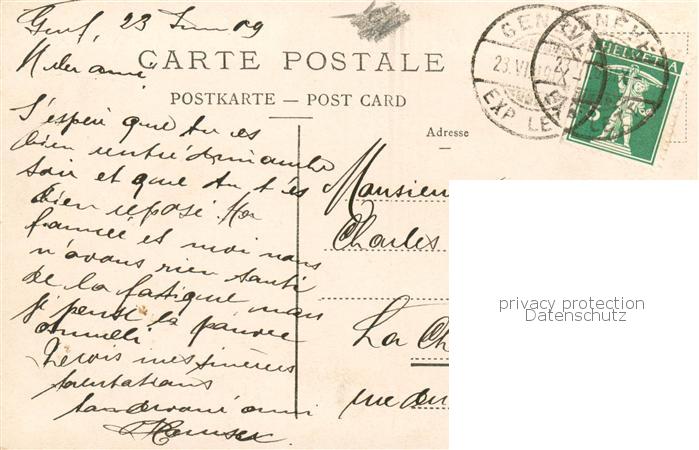 Genf, 23 Juin 09
CARTE POSTALE
POSTKARTE — POST CARD
Adresse
GENÈVE
23.VI
EXP. LE
GENÈVE
HELVETIA
5
ami
J'espère que tu es
bien rentré dimanche
soir et que tu t'es
bien reposé. Ma
fiancée et moi nous
n'avons rien senti
de la fatigue mais
je pense la pauvre
Reçois mes sincères
salutations
ton dévoué ami
Monsieur
Charles
La Ch
rue du
privacy protection
Datenschutz